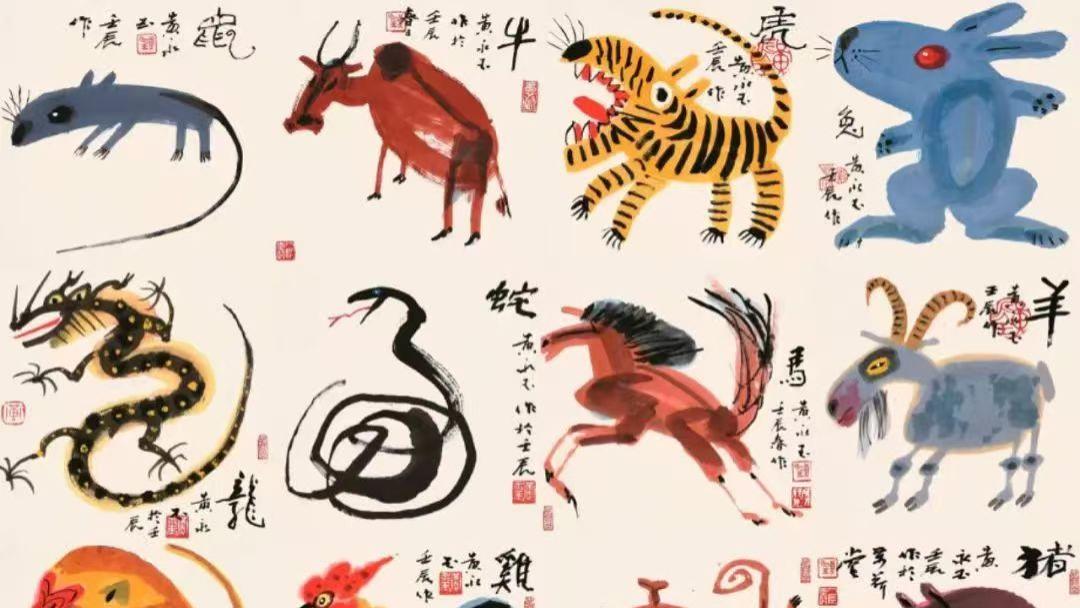 鼠
黄永
玉
壬辰
作
牛
黄永玉
作於
壬辰
虎
黄永玉
壬辰作
兔
黄永玉
壬辰作
龍
黄永
玉
於壬
辰
蛇
黄永玉作於壬辰
馬
黄永玉
壬辰春作
羊
黄永玉
壬辰作
雞
黄永
玉
壬辰作
猪
黄永玉
壬辰
作於
万荷
堂